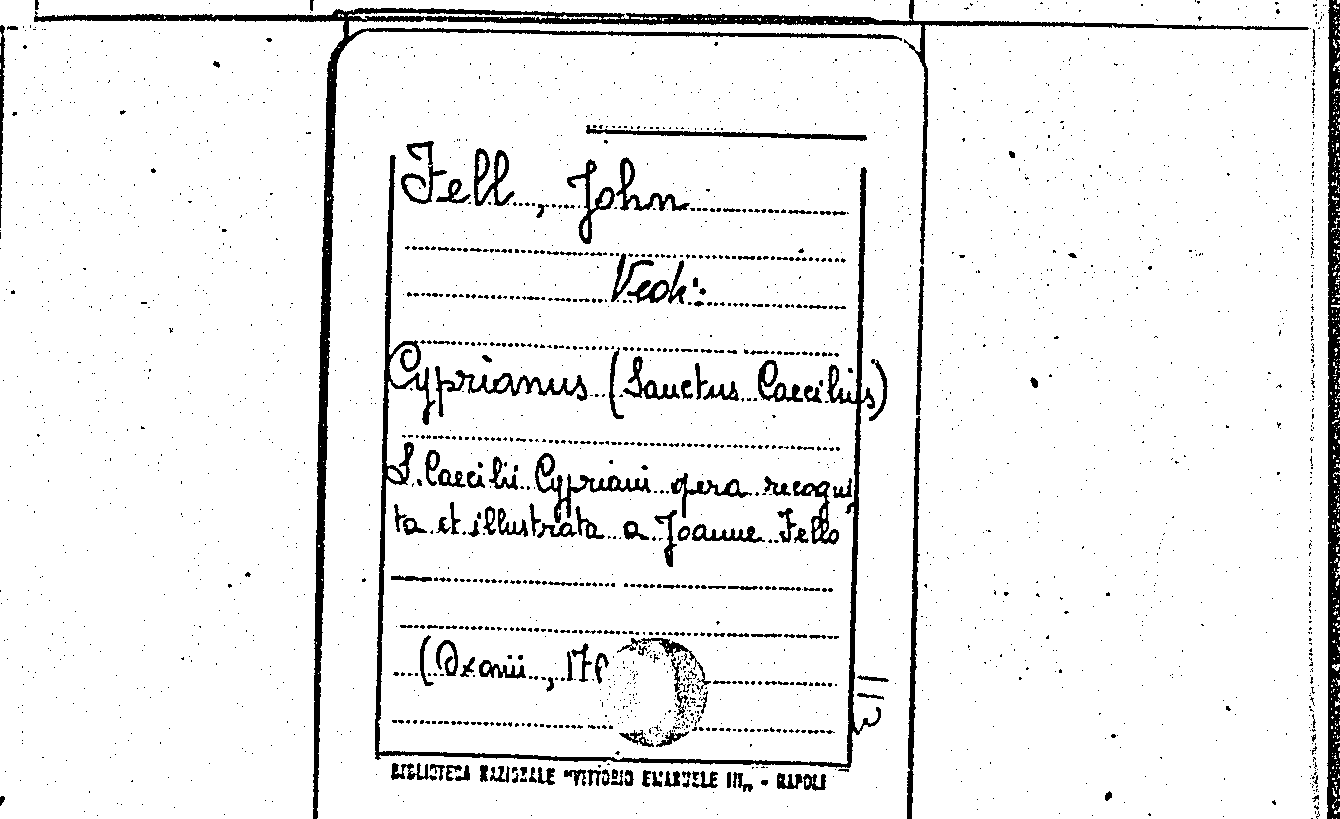 Fell, John
Vedi:
Cyprianus (Sanctus Caecilius)
S. Caecilii Cypriani opera recogni
ta et illustrata a Joanne Fello
(Oxonii, 17
BIBLIOTECA NAZIONALE "VITTORIO EMANUELE III" - NAPOLI